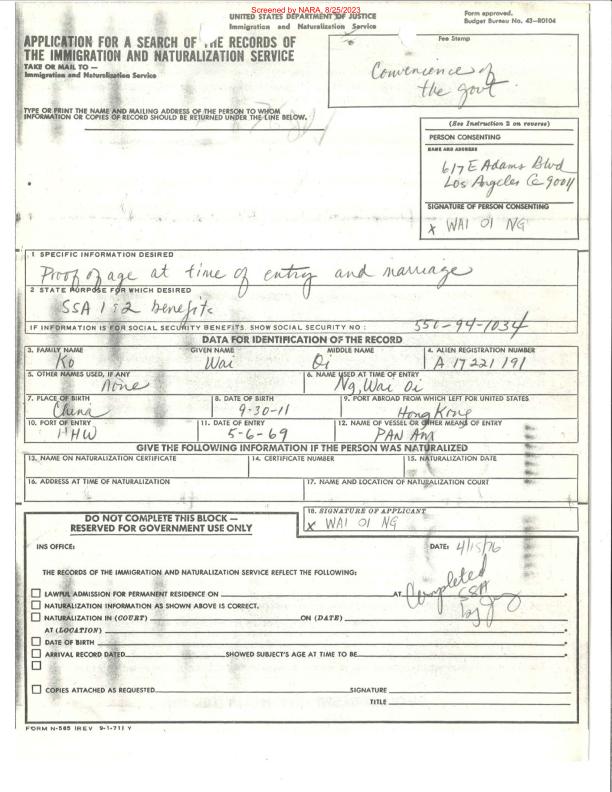 Screened by NARA, 8/25/2023
UNITED STATES DEPARTMENT OF JUSTICE
Immigration and Naturalization Service
Form approved.
Budget Bureau No. 43-R0104
APPLICATION FOR A SEARCH OF THE RECORDS OF
THE IMMIGRATION AND NATURALIZATION SERVICE
TAKE OR MAIL TO —
Immigration and Naturalization Service
Fee Stamp
Convenience of
the govt
TYPE OR PRINT THE NAME AND MAILING ADDRESS OF THE PERSON TO WHOM
INFORMATION OR COPIES OF RECORD SHOULD BE RETURNED UNDER THE LINE BELOW.
(See Instruction 2 on reverse)
PERSON CONSENTING
NAME AND ADDRESS
617 E Adams Blvd
Los Angeles Ca 90011
SIGNATURE OF PERSON CONSENTING
X WAI OI NG
1 SPECIFIC INFORMATION DESIRED
Proof of age at time of entry and marriage
2 STATE PURPOSE FOR WHICH DESIRED
SSA 1 & 2 benefits
IF INFORMATION IS FOR SOCIAL SECURITY BENEFITS, SHOW SOCIAL SECURITY NO : 550-94-1034
DATA FOR IDENTIFICATION OF THE RECORD
3. FAMILY NAME GIVEN NAME MIDDLE NAME 4. ALIEN REGISTRATION NUMBER
Ko Wai Oi A 17 221 191
5. OTHER NAMES USED, IF ANY 6. NAME USED AT TIME OF ENTRY
none Ng, Wai Oi
7. PLACE OF BIRTH 8. DATE OF BIRTH 9. PORT ABROAD FROM WHICH LEFT FOR UNITED STATES
China 9-30-11 Hong Kong
10. PORT OF ENTRY 11. DATE OF ENTRY 12. NAME OF VESSEL OR OTHER MEANS OF ENTRY
HHW 5-6-69 PAN Am
GIVE THE FOLLOWING INFORMATION IF THE PERSON WAS NATURALIZED
13. NAME ON NATURALIZATION CERTIFICATE 14. CERTIFICATE NUMBER 15. NATURALIZATION DATE
16. ADDRESS AT TIME OF NATURALIZATION 17. NAME AND LOCATION OF NATURALIZATION COURT
DO NOT COMPLETE THIS BLOCK —
RESERVED FOR GOVERNMENT USE ONLY
18. SIGNATURE OF APPLICANT
X WAI OI NG
INS OFFICE: DATE: 4/15/76
THE RECORDS OF THE IMMIGRATION AND NATURALIZATION SERVICE REFLECT THE FOLLOWING:
Completed
SSA
by
LAWFUL ADMISSION FOR PERMANENT RESIDENCE ON AT
NATURALIZATION INFORMATION AS SHOWN ABOVE IS CORRECT.
NATURALIZATION IN (COURT) ON (DATE)
AT (LOCATION)
DATE OF BIRTH
ARRIVAL RECORD DATED SHOWED SUBJECT'S AGE AT TIME TO BE
COPIES ATTACHED AS REQUESTED SIGNATURE
TITLE
FORM N-585 (REV 9-1-71) Y